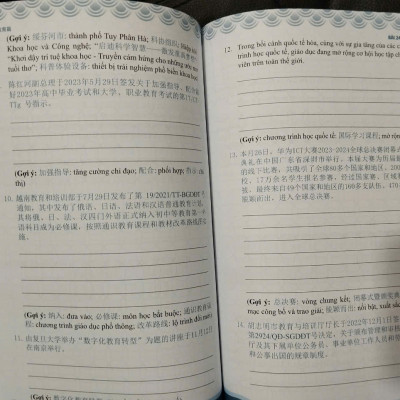 (Gợi ý): 绥芬河市: thành phố Tuy Phân Hà; 科协组织:
Khoa học và Công nghệ; "启迪科学智慧——激发
"Khơi dậy trí tuệ khoa học - Truyền cảm hứng cho những ước mơ
tuổi thơ", 科普体验设备: thiết bị trải nghiệm phổ biến khoa học
陈红河副总理于2023年5月29日签发关于加强指导、配合做
好2023年高中毕业考试和大学、职业教育考试的第
Ttg 号指示。
(Gợi ý): 加强指导: tăng cường chỉ đạo; 配合: phối hợp;
10. 越南教育和培训部于7月29日发布了第 19/2021/TT-BGDĐT
知, 其中发布了俄语、日语、法语和汉语普通教育计划,
其将俄、日、法、汉四门外语正式纳入初中等教育第一
语科目成为必修课, 按照通识教育课程和教材改革路线实
(Gợi ý): 纳入: đưa vào; 必修课: môn học bắt buộc; 通识教育课
程: chương trình giáo dục phổ thông; 改革路线: lộ trình đổi mới
11. 由复旦大学举办 "数字化教育转型" 为题的讲座于11月12日
在南京举行。
(Gợi ý): 数字化教育
12. Trong bối cảnh quốc tế hóa, cùng với sự gia tăng của các
trình học quốc tế, giáo dục đang mở rộng cơ hội học tập
viên trên toàn thế giới.
(Gợi ý): chương trình học quốc tế: 国际学习课程; mở
13. 本行26日, 华为ICT大赛2023-2024全球总决赛闭幕
典礼在中国广东省深圳市举行。本场大赛为历届最
的线下比赛, 共吸引了全球80多个国家和地区、2000
校、17万余名学生报名参赛。经过国家赛、区域
赛, 最终来自49个国家和地区的160多支队伍、470
颖而出, 进入全球总决赛。
(Gợi ý): 总决赛: vòng chung kết; 闭幕式暨颁奖典
mạc công bố và trao giải; 脱颖而出: nổi bật, xuất sắc
14. 胡志明市教育与培训厅厅长于2022年12月1日签
第2924/QĐ-SGDĐT号决定, 关于颁布管理和审核
厅及其下属单位公务员、事业单位工作人员和
和公事出国的规章制度。